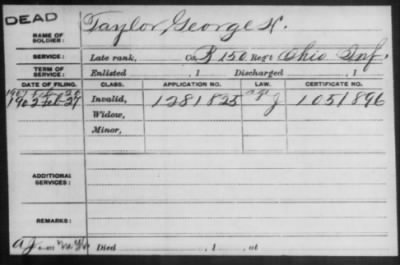 DEAD
NAME OF SOLDIER: Taylor, George H.
SERVICE: Late rank, Co. B 150 Reg't Ohio Inf.
TERM OF SERVICE: Enlisted , 1 Discharged , 1
DATE OF FILING. CLASS. APPLICATION NO. LAW. CERTIFICATE NO.
1902 Feb 27 Invalid, 1281825 J 1051896
Widow,
Minor,
ADDITIONAL SERVICES:
REMARKS:
Died , 1 , at